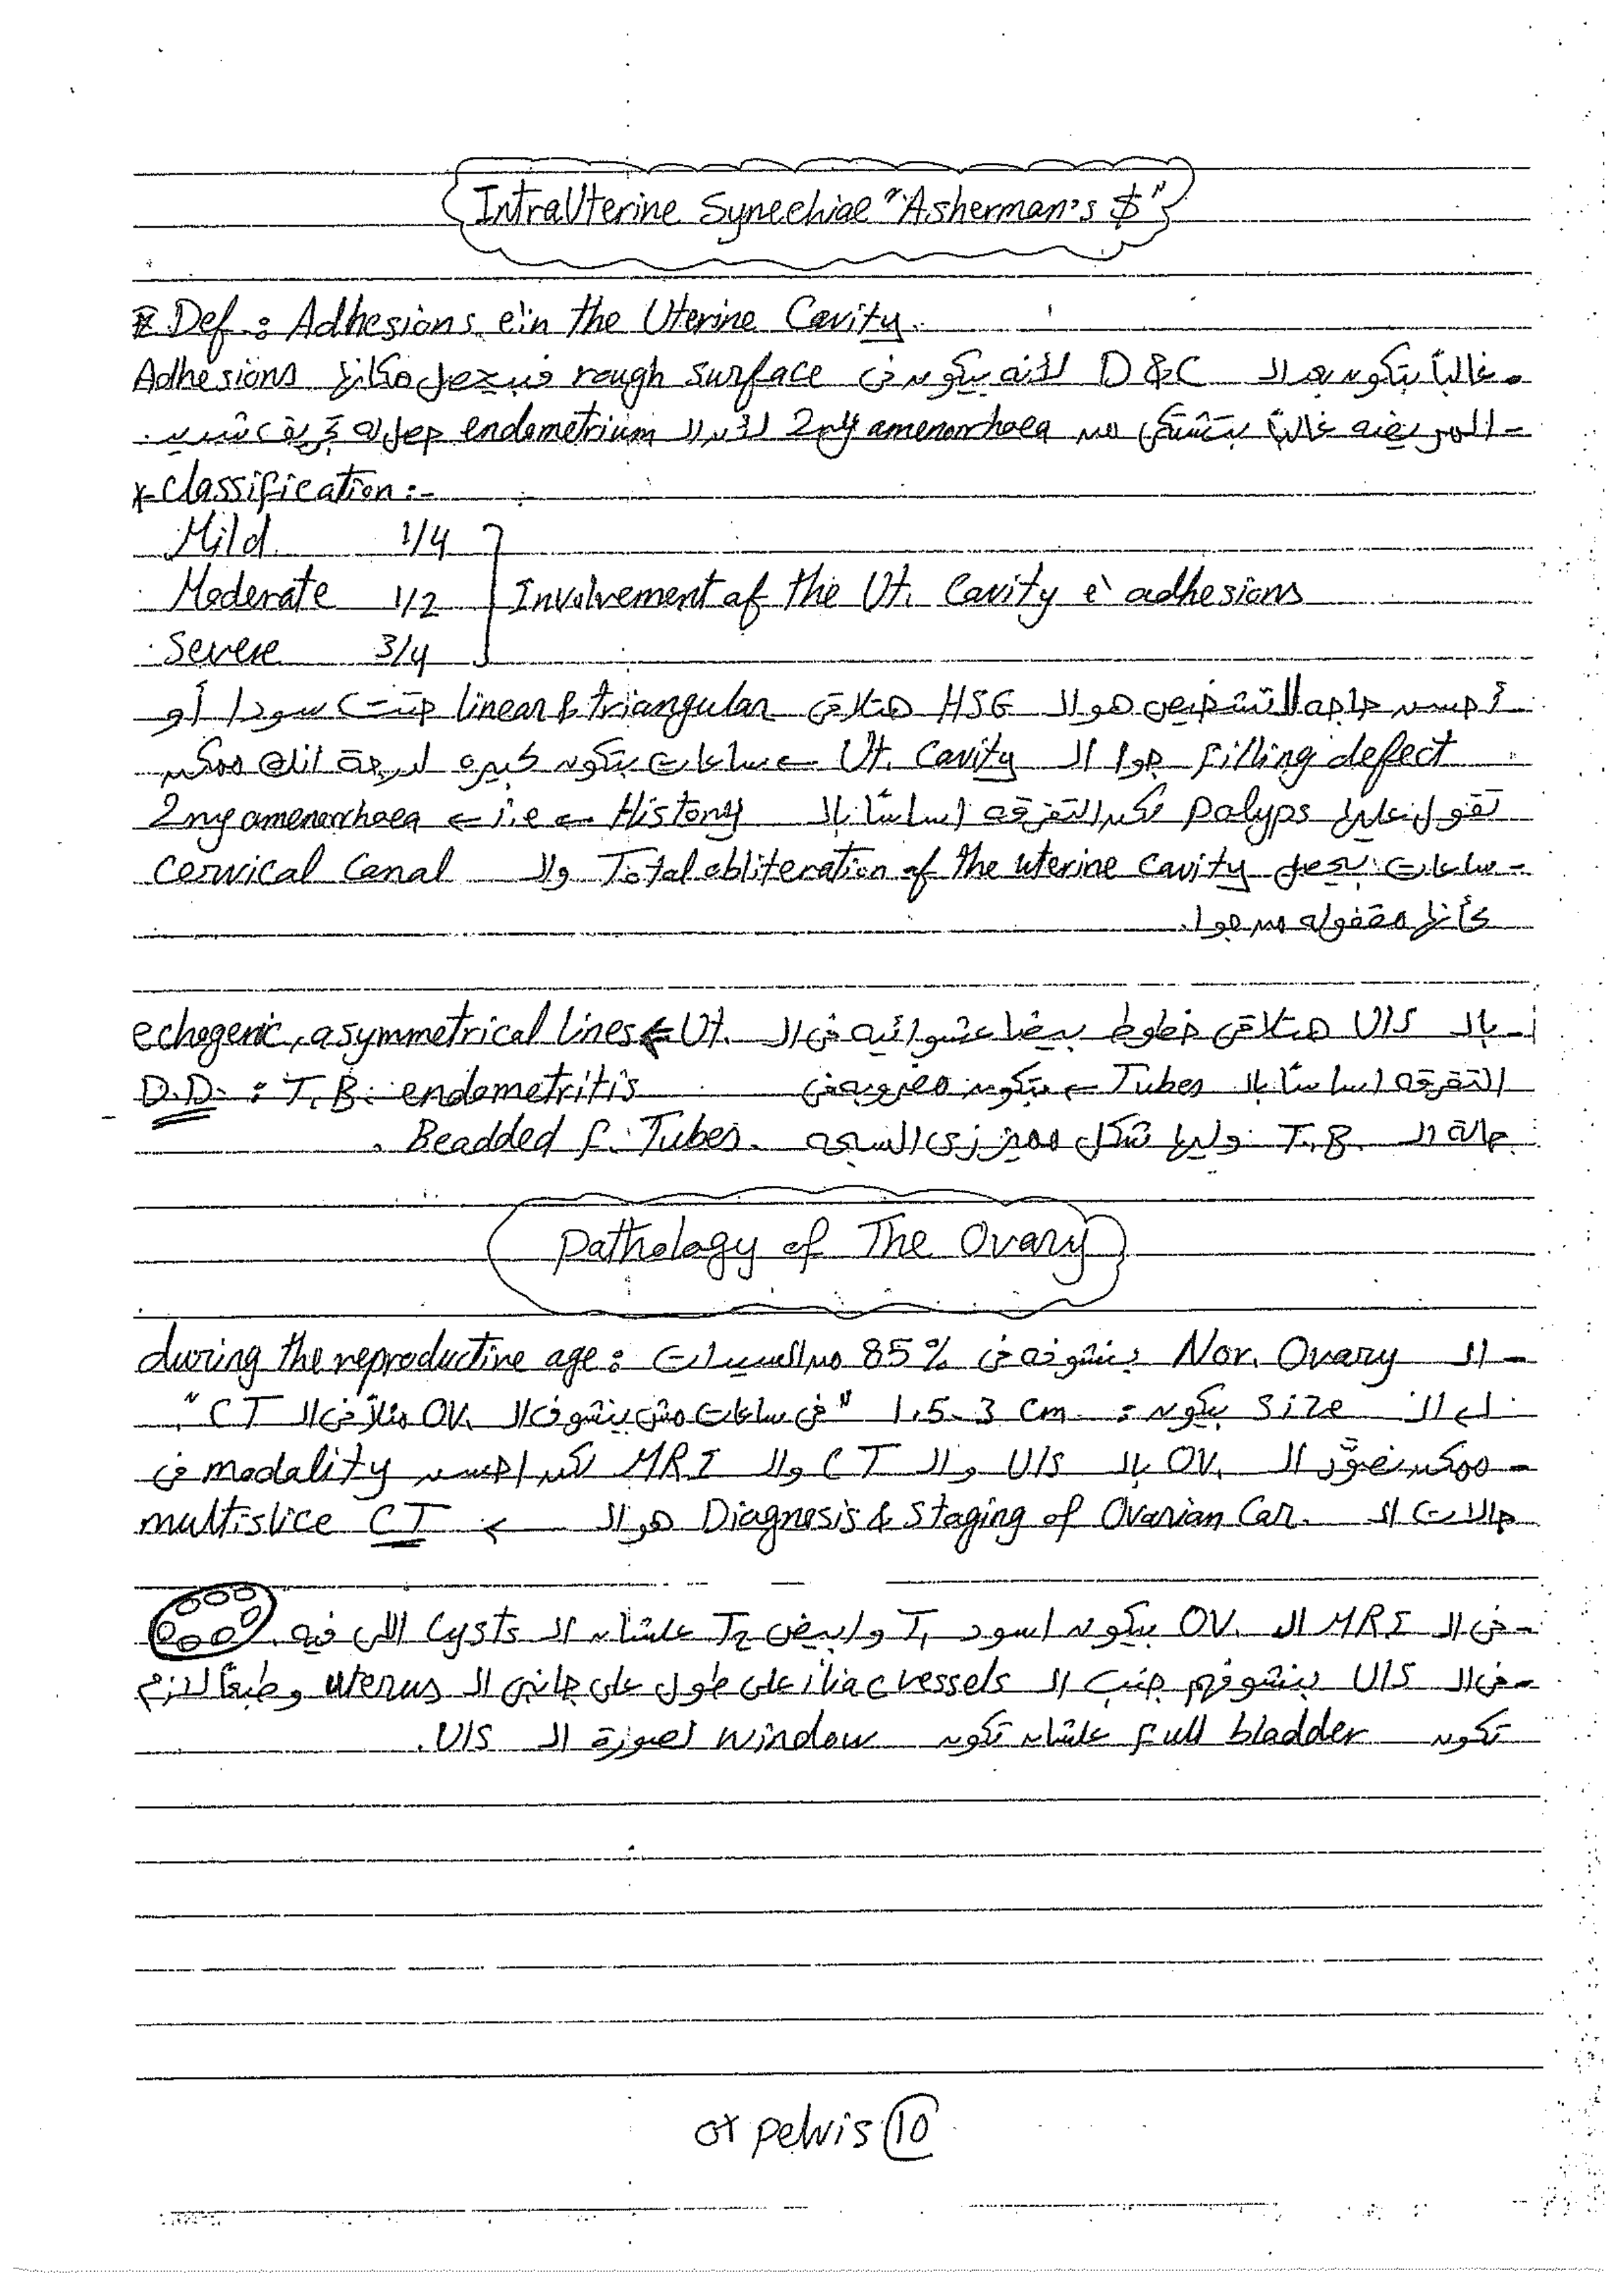 IntraUterine Synechiae "Asherman's $"
* Def.: Adhesions e̔in the Uterine Cavity.
- غالباً بتكون بعد الـ D&C لأنه بيكون في rough surface فبيحصل مكانها Adhesions
- المريضه غالباً بتشتكي من 2ry amenorrhaea لأن الـ endometrium حصل له تجريف شديد.
* Classification:-
Mild 1/4
Moderate 1/2 Involvement of the Ut. Cavity e̔ adhesions
Severe 3/4
- أحسن حاجه للتشخيص هو الـ HSG هتلاقي linear & triangular حتت سودا أو
filling defect جوا الـ Ut. Cavity ← ساعات بتكون كبيره لدرجة انك ممكن
تقول عليها polyps لكن التفرقه اساساً بالـ History ← i.e ← 2ry amenorrhaea
- ساعات بيحصل Total obliteration of the uterine cavity والـ cervical Canal
كأنها مقفوله من جوا.
- بالـ U/S هتلاقي خطوط بيضا عشوائيه في الـ Ut. ← echogenic, asymmetrical lines
D.D. : T.B. endometritis التفرقه اساساً بالـ Tubes ← بتكون مضروبه في
حالة الـ T.B. وليها شكل مميز زي السبحه Beadded f. Tubes.
Pathology of The Ovary
- الـ Nor. Ovary بنشوفه في 85% من السيدات : during the reproductive age
الـ size بيكون : 1.5-3 cm "في ساعات مش بنشوف الـ OV. مثلاً في الـ CT".
- ممكن نصوَّر الـ OV. بالـ U/S والـ CT والـ MRI لكن احسن modality في
حالات الـ Diagnosis & Staging of Ovarian Car. هو الـ ← multislice CT
- في الـ MRI الـ OV. بيكون اسود T1 وابيض T2 علشان الـ Cysts اللي فيه.
- في الـ U/S بنشوفهم جنب الـ iliac vessels على طول على جانبي الـ uterus وطبعاً لازم
تكون full bladder علشان تكون window لصورة الـ U/S.
pelvis 10